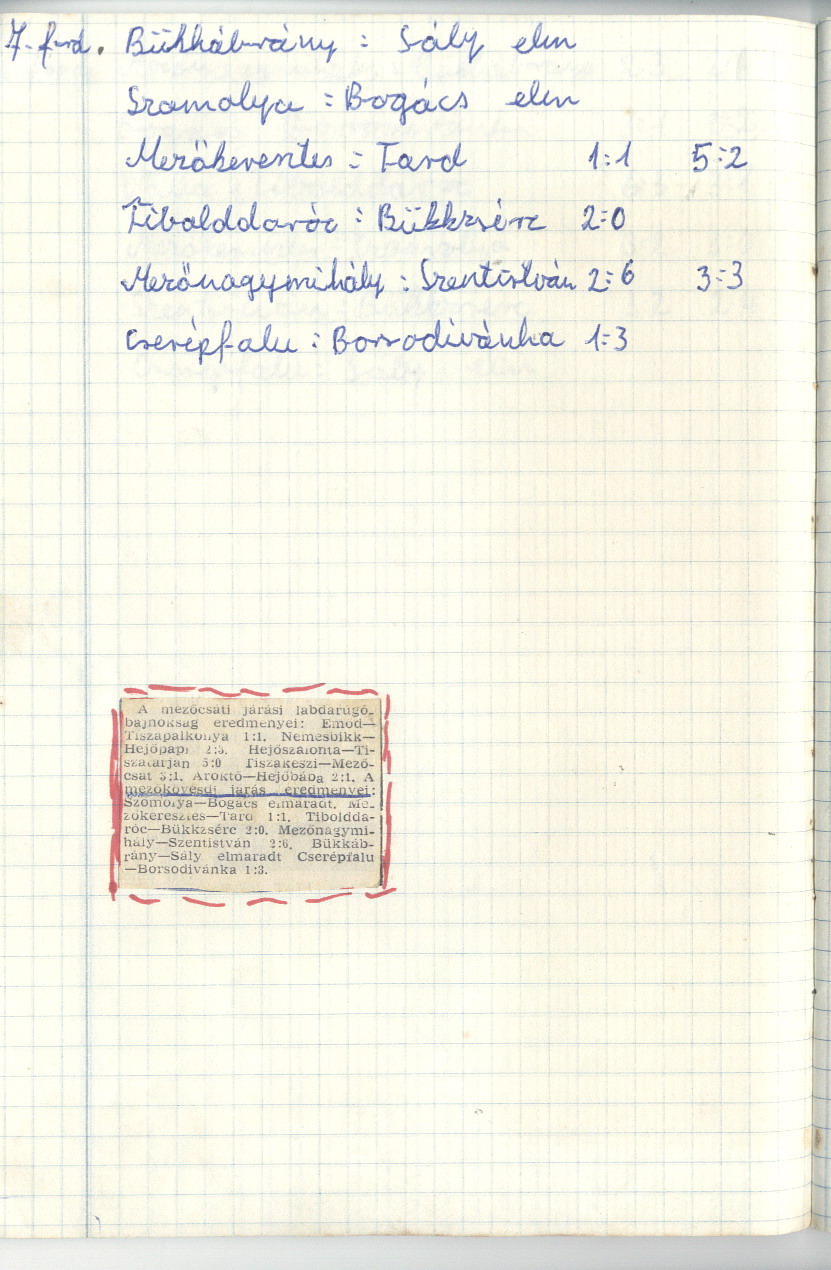 7. ford. Bükkábrány : Sály elm
Szomolya : Bogács elm
Mezőkeresztes : Tard 1:1 5:2
Tibolddaróc : Bükkzsérc 2:0
Mezőnagymihály : Szentistván 2:6 3:3
Cserépfalu : Borsodivánka 1:3
A mezőcsáti járási labdarúgó-
bajnokság eredményei: Emőd—
Tiszapalkonya 1:1. Nemesbikk—
Hejőpapi 2:3. Hejőszalonta—Ti-
szatarján 5:0 Tiszakeszi—Mező-
csát 3:1. Ároktő—Hejőbába 2:1. A
mezőkövesdi járás eredményei:
Szomolya—Bogács elmaradt. Me-
zőkeresztes—Tard 1:1. Tiboldda-
róc—Bükkzsérc 2:0. Mezőnagymi-
hály—Szentistván 2:6. Bükkáb-
rány—Sály elmaradt Cserépfalu
—Borsodivánka 1:3.